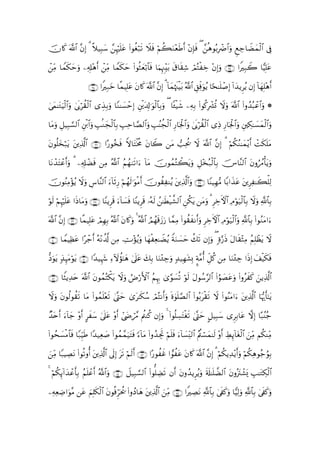 فِي ٱلْمَضَاجِعِ وَٱضْرِبُوهُنَّ ۖ فَإِنْ أَطَعْنَكُمْ فَلَا تَبْغُوا۟ عَلَيْهِنَّ سَبِيلًا ۗ إِنَّ ٱللَّهَ كَانَ
عَلِيًّا كَبِيرًا ﴿٣٤﴾ وَإِنْ خِفْتُمْ شِقَاقَ بَيْنِهِمَا فَٱبْعَثُوا۟ حَكَمًا مِّنْ أَهْلِهِۦ وَحَكَمًا مِّنْ
أَهْلِهَآ إِن يُرِيدَآ إِصْلَٰحًا يُوَفِّقِ ٱللَّهُ بَيْنَهُمَآ ۗ إِنَّ ٱللَّهَ كَانَ عَلِيمًا خَبِيرًا ﴿٣٥﴾
۞ وَٱعْبُدُوا۟ ٱللَّهَ وَلَا تُشْرِكُوا۟ بِهِۦ شَيْـًٔا ۖ وَبِٱلْوَٰلِدَيْنِ إِحْسَٰنًا وَبِذِى ٱلْقُرْبَىٰ وَٱلْيَتَٰمَىٰ
وَٱلْمَسَٰكِينِ وَٱلْجَارِ ذِى ٱلْقُرْبَىٰ وَٱلْجَارِ ٱلْجُنُبِ وَٱلصَّاحِبِ بِٱلْجَنۢبِ وَٱبْنِ ٱلسَّبِيلِ وَمَا
مَلَكَتْ أَيْمَٰنُكُمْ ۗ إِنَّ ٱللَّهَ لَا يُحِبُّ مَن كَانَ مُخْتَالًا فَخُورًا ﴿٣٦﴾ ٱلَّذِينَ يَبْخَلُونَ
وَيَأْمُرُونَ ٱلنَّاسَ بِٱلْبُخْلِ وَيَكْتُمُونَ مَآ ءَاتَىٰهُمُ ٱللَّهُ مِن فَضْلِهِۦ ۗ وَأَعْتَدْنَا
لِلْكَٰفِرِينَ عَذَابًا مُّهِينًا ﴿٣٧﴾ وَٱلَّذِينَ يُنفِقُونَ أَمْوَٰلَهُمْ رِئَآءَ ٱلنَّاسِ وَلَا يُؤْمِنُونَ
بِٱللَّهِ وَلَا بِٱلْيَوْمِ ٱلْءَاخِرِ ۗ وَمَن يَكُنِ ٱلشَّيْطَٰنُ لَهُۥ قَرِينًا فَسَآءَ قَرِينًا ﴿٣٨﴾ وَمَاذَا عَلَيْهِمْ لَوْ
ءَامَنُوا۟ بِٱللَّهِ وَٱلْيَوْمِ ٱلْءَاخِرِ وَأَنفَقُوا۟ مِمَّا رَزَقَهُمُ ٱللَّهُ ۚ وَكَانَ ٱللَّهُ بِهِمْ عَلِيمًا ﴿٣٩﴾ إِنَّ ٱللَّهَ
لَا يَظْلِمُ مِثْقَالَ ذَرَّةٍ ۖ وَإِن تَكُ حَسَنَةً يُضَٰعِفْهَا وَيُؤْتِ مِن لَّدُنْهُ أَجْرًا عَظِيمًا ﴿٤٠﴾
فَكَيْفَ إِذَا جِئْنَا مِن كُلِّ أُمَّةٍۭ بِشَهِيدٍ وَجِئْنَا بِكَ عَلَىٰ هَٰٓؤُلَآءِ شَهِيدًا ﴿٤١﴾ يَوْمَئِذٍ يَوَدُّ
ٱلَّذِينَ كَفَرُوا۟ وَعَصَوُا۟ ٱلرَّسُولَ لَوْ تُسَوَّىٰ بِهِمُ ٱلْأَرْضُ وَلَا يَكْتُمُونَ ٱللَّهَ حَدِيثًا ﴿٤٢﴾
يَٰٓأَيُّهَا ٱلَّذِينَ ءَامَنُوا۟ لَا تَقْرَبُوا۟ ٱلصَّلَوٰةَ وَأَنتُمْ سُكَٰرَىٰ حَتَّىٰ تَعْلَمُوا۟ مَا تَقُولُونَ وَلَا
جُنُبًا إِلَّا عَابِرِى سَبِيلٍ حَتَّىٰ تَغْتَسِلُوا۟ ۚ وَإِن كُنتُم مَّرْضَىٰٓ أَوْ عَلَىٰ سَفَرٍ أَوْ جَآءَ أَحَدٌ
مِّنكُم مِّنَ ٱلْغَآئِطِ أَوْ لَٰمَسْتُمُ ٱلنِّسَآءَ فَلَمْ تَجِدُوا۟ مَآءً فَتَيَمَّمُوا۟ صَعِيدًا طَيِّبًا فَٱمْسَحُوا۟
بِوُجُوهِكُمْ وَأَيْدِيكُمْ ۗ إِنَّ ٱللَّهَ كَانَ عَفُوًّا غَفُورًا ﴿٤٣﴾ أَلَمْ تَرَ إِلَى ٱلَّذِينَ أُوتُوا۟ نَصِيبًا مِّنَ
ٱلْكِتَٰبِ يَشْتَرُونَ ٱلضَّلَٰلَةَ وَيُرِيدُونَ أَن تَضِلُّوا۟ ٱلسَّبِيلَ ﴿٤٤﴾ وَٱللَّهُ أَعْلَمُ بِأَعْدَآئِكُمْ ۚ
وَكَفَىٰ بِٱللَّهِ وَلِيًّا وَكَفَىٰ بِٱللَّهِ نَصِيرًا ﴿٤٥﴾ مِّنَ ٱلَّذِينَ هَادُوا۟ يُحَرِّفُونَ ٱلْكَلِمَ عَن مَّوَاضِعِهِۦ